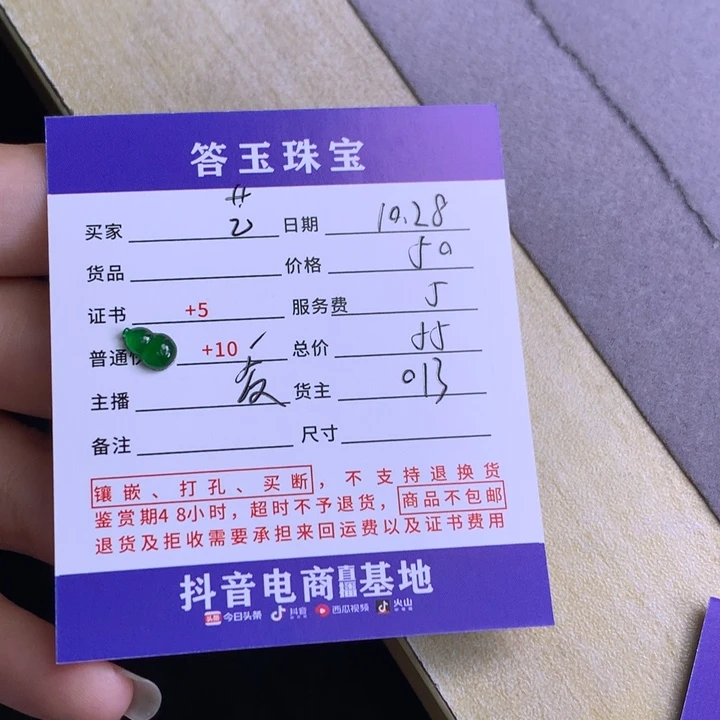 答玉珠宝
买家 艺 日期 10.28
货品 价格 50
证书 +5 服务费 5
普通快 +10 总价 55
主播 货主 013
备注 尺寸
镶嵌、打孔、买断，不支持退换货
鉴赏期48小时，超时不予退货，商品不包邮
退货及拒收需要承担来回运费以及证书费用
抖音电商直播基地
头条 今日头条 抖音 西瓜视频 火山